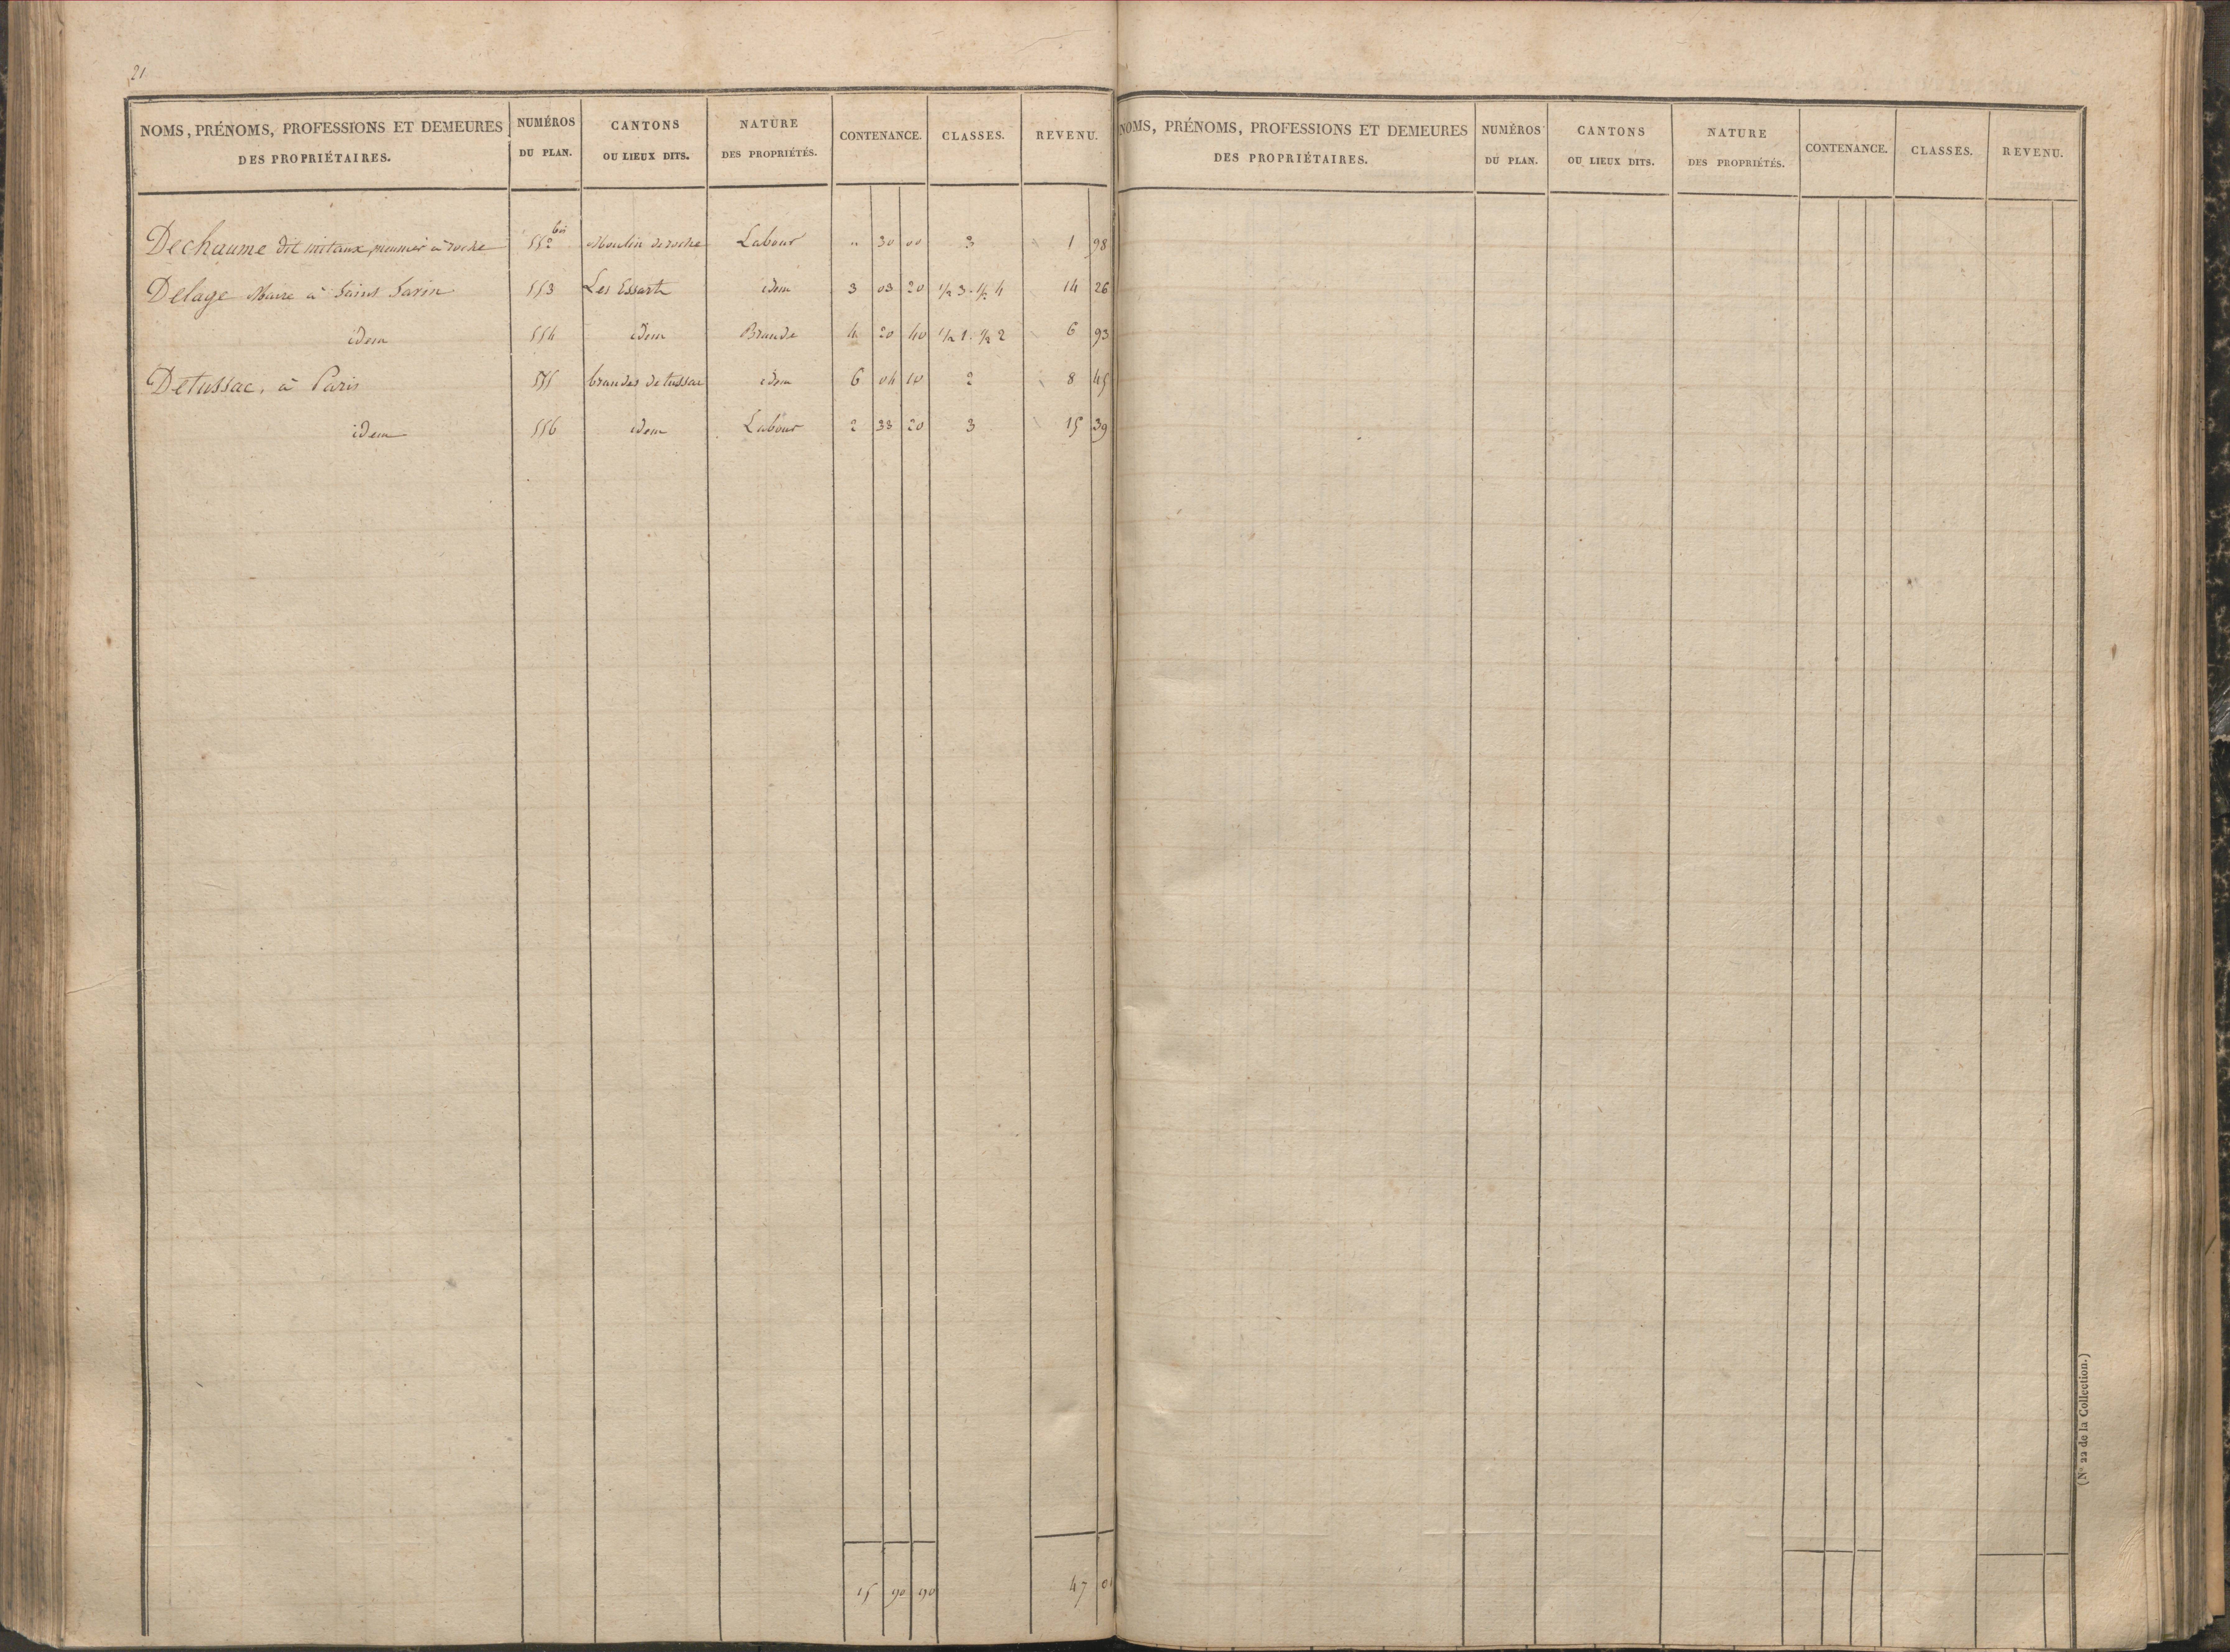 21
NOMS, PRÉNOMS, PROFESSIONS ET DEMEURES DES PROPRIÉTAIRES. NUMÉROS DU PLAN. CANTONS OU LIEUX DITS. NATURE DES PROPRIÉTÉS. CONTENANCE. CLASSES. REVENU.
Dechaume dit mitaux, meunier à roche 552 bis Moulin de roche Labour " 30 00 3 1 98
Delage Maire à Saint Savin 553 Les Essarts idem 3 03 20 1/2 3. 1/2 4 14 26
idem 554 idem Brande 4 20 40 1/2 1. 1/2 2 6 93
Detussac, à Paris 555 brandes de tussac idem 6 04 10 2 8 45
idem 556 idem Labour 2 33 20 3 15 39
15 90 90 47 01
NOMS, PRÉNOMS, PROFESSIONS ET DEMEURES DES PROPRIÉTAIRES. NUMÉROS DU PLAN. CANTONS OU LIEUX DITS. NATURE DES PROPRIÉTÉS. CONTENANCE. CLASSES. REVENU.
(N° 22 de la Collection.)